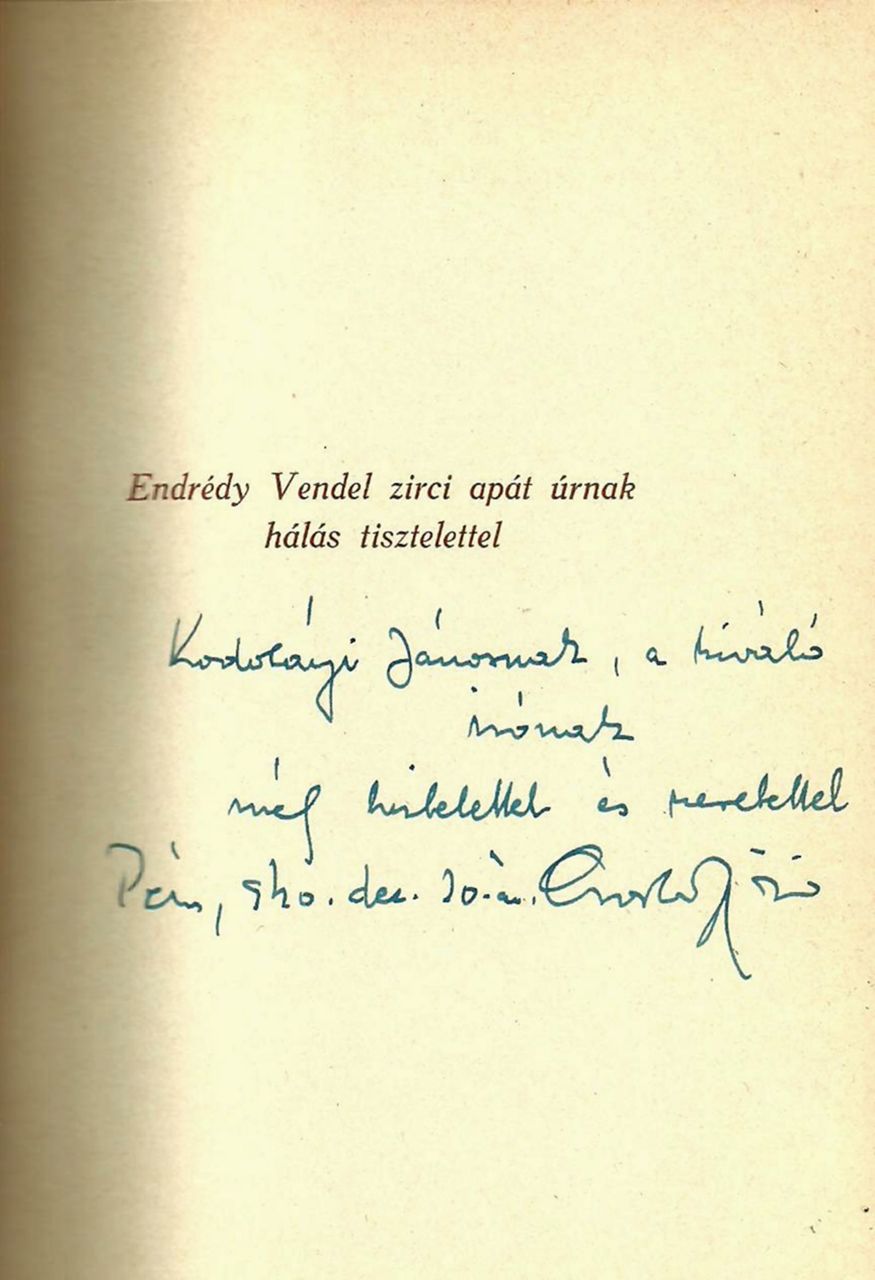 Endrédy Vendel zirci apát úrnak
hálás tisztelettel
Kodolányi Jánosnak, a kiváló
írónak
mély tisztelettel és szeretettel
Pécs, 940. dec. Csorba Győző